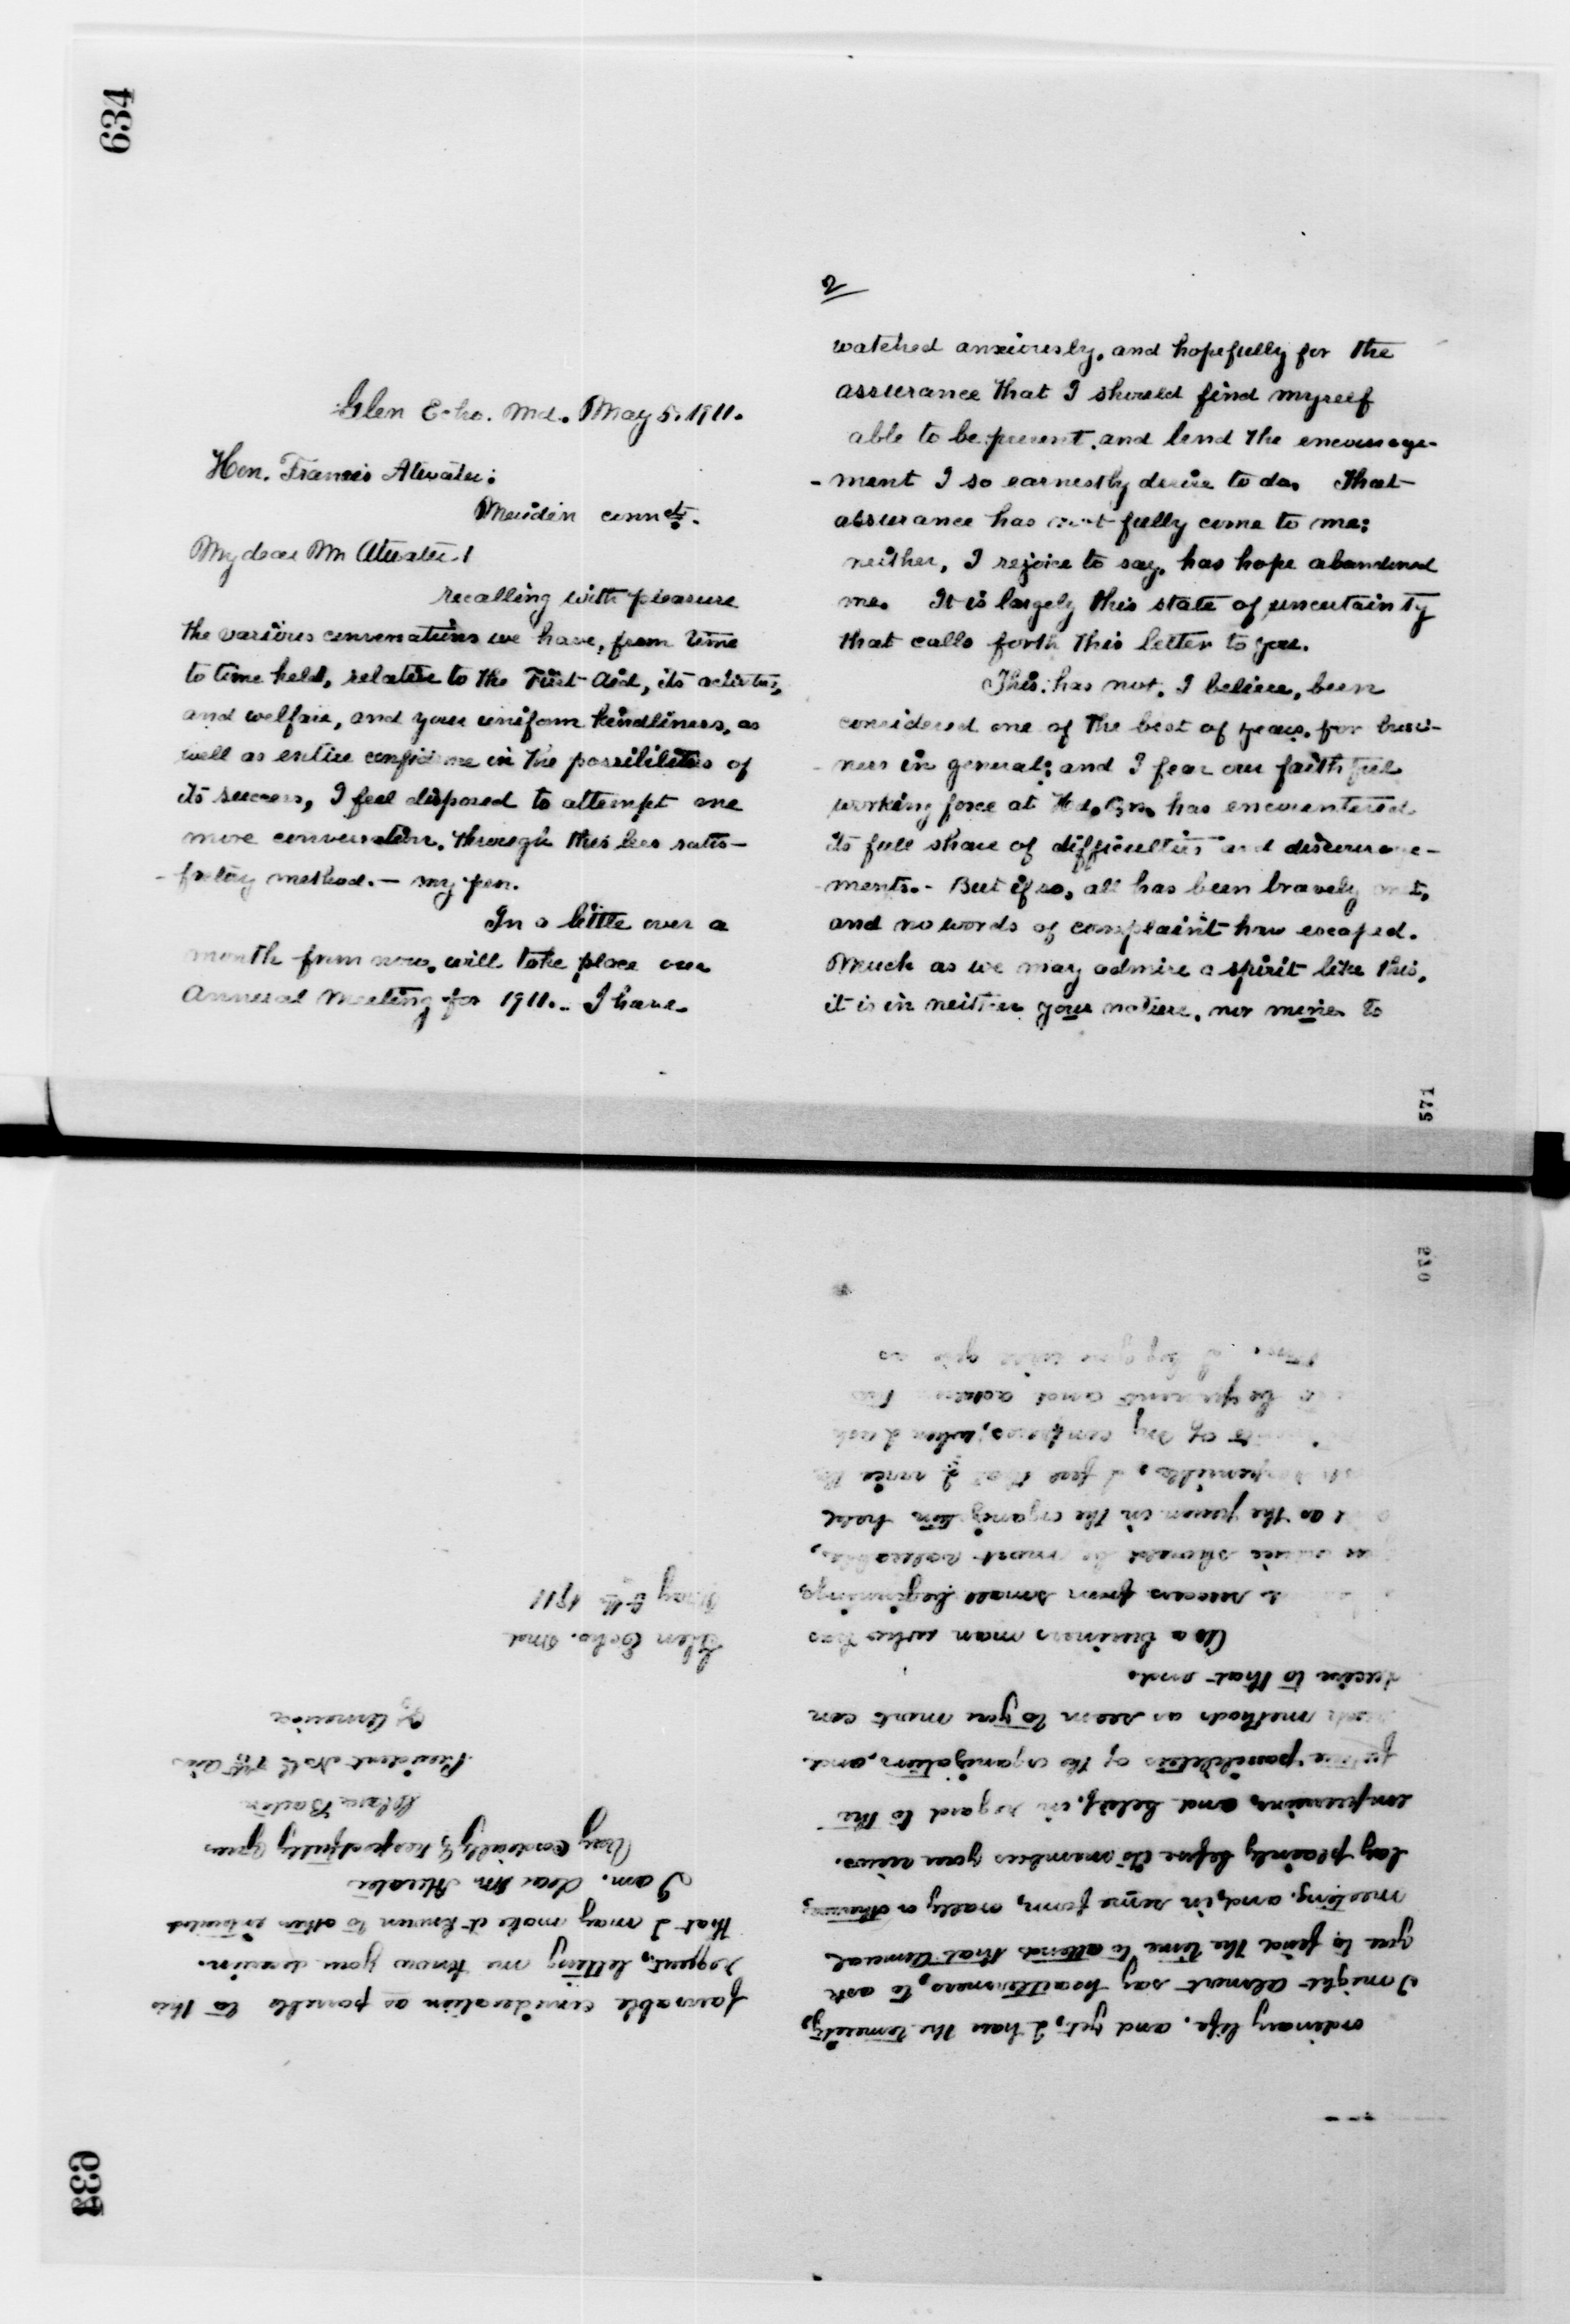 634
Glen Echo. Md. May 5. 1911.
Hon. Francis Atwater:
Meriden connct.
My dear Mr Atwater!
recalling with pleasure
the various conversations we have, from time
to time held, relative to the First Aid, its activities,
and welfare, and your uniform kindliness, as
well as entire confidence in the possibilities of
its success, I feel disposed to attempt one
more conversation. through this less satis-
-factory method. — my pen.
In a little over a
month from now, will take place our
Annual Meeting for 1911. I have
2
watched anxiously, and hopefully for the
assurance that I should find myself
able to be present, and lend the encourage-
-ment I so earnestly desire to do. That
assurance has not fully come to me:
neither, I rejoice to say, has hope abandoned
me. It is largely this state of uncertainty
that calls forth this letter to you.
This has not, I believe, been
considered one of the best of years, for busi-
-ness in general: and I fear our faithful
working force at Hd. Qrs. has encountered
its full share of difficulties and discourage-
-ments. - But if so, all has been bravely met,
and no words of complaint have escaped.
Much as we may admire a spirit like this,
it is in neither your nature, nor mine to
571
570
ordinary life. and yet, I have the temerity,
I might almost say heartlessness, to ask
you to find the time to attend that Annual
meeting, and, in some form, orally or otherwise,
lay plainly before its members your views,
impressions, and belief, in regard to the
future possibilities of the organization, and
such methods as seem to you most con
ducive to that end.
As a business man who has
success from small beginnings
your advice should be most valuable,
as the person in the organization held
responsible, I feel that I
of my confreres, when I ask
to be present and address
time. I beg you will give as
favorable consideration as possible to this
request, letting me know your decision.
that I may make it known to other interested
I am. dear Mr Atwater
Very cordially & respectfully yours
Clara Barton
President Natl 1st Aid
of America
Glen Echo. Md
May 5th 1911
633